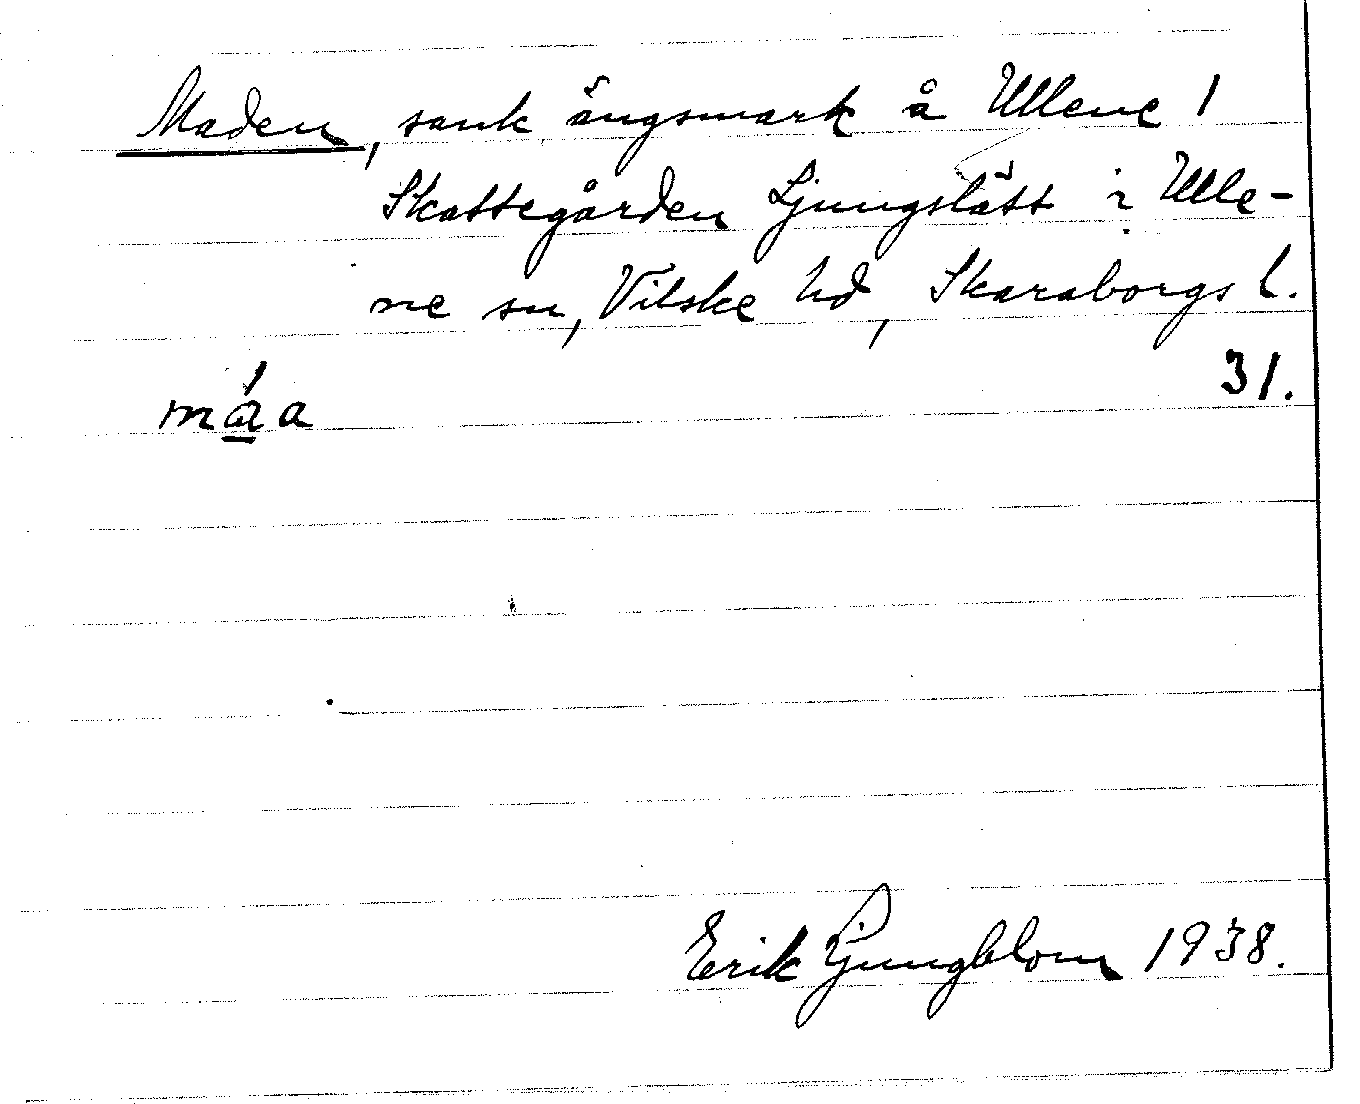 Maden, sank ängsmark å Ullene 1
Skattegården Ljungslätt i Ulle-
ne sn, Vilske hd, Skaraborgs l.
måa 31.
Erik Ljungblom 1938.